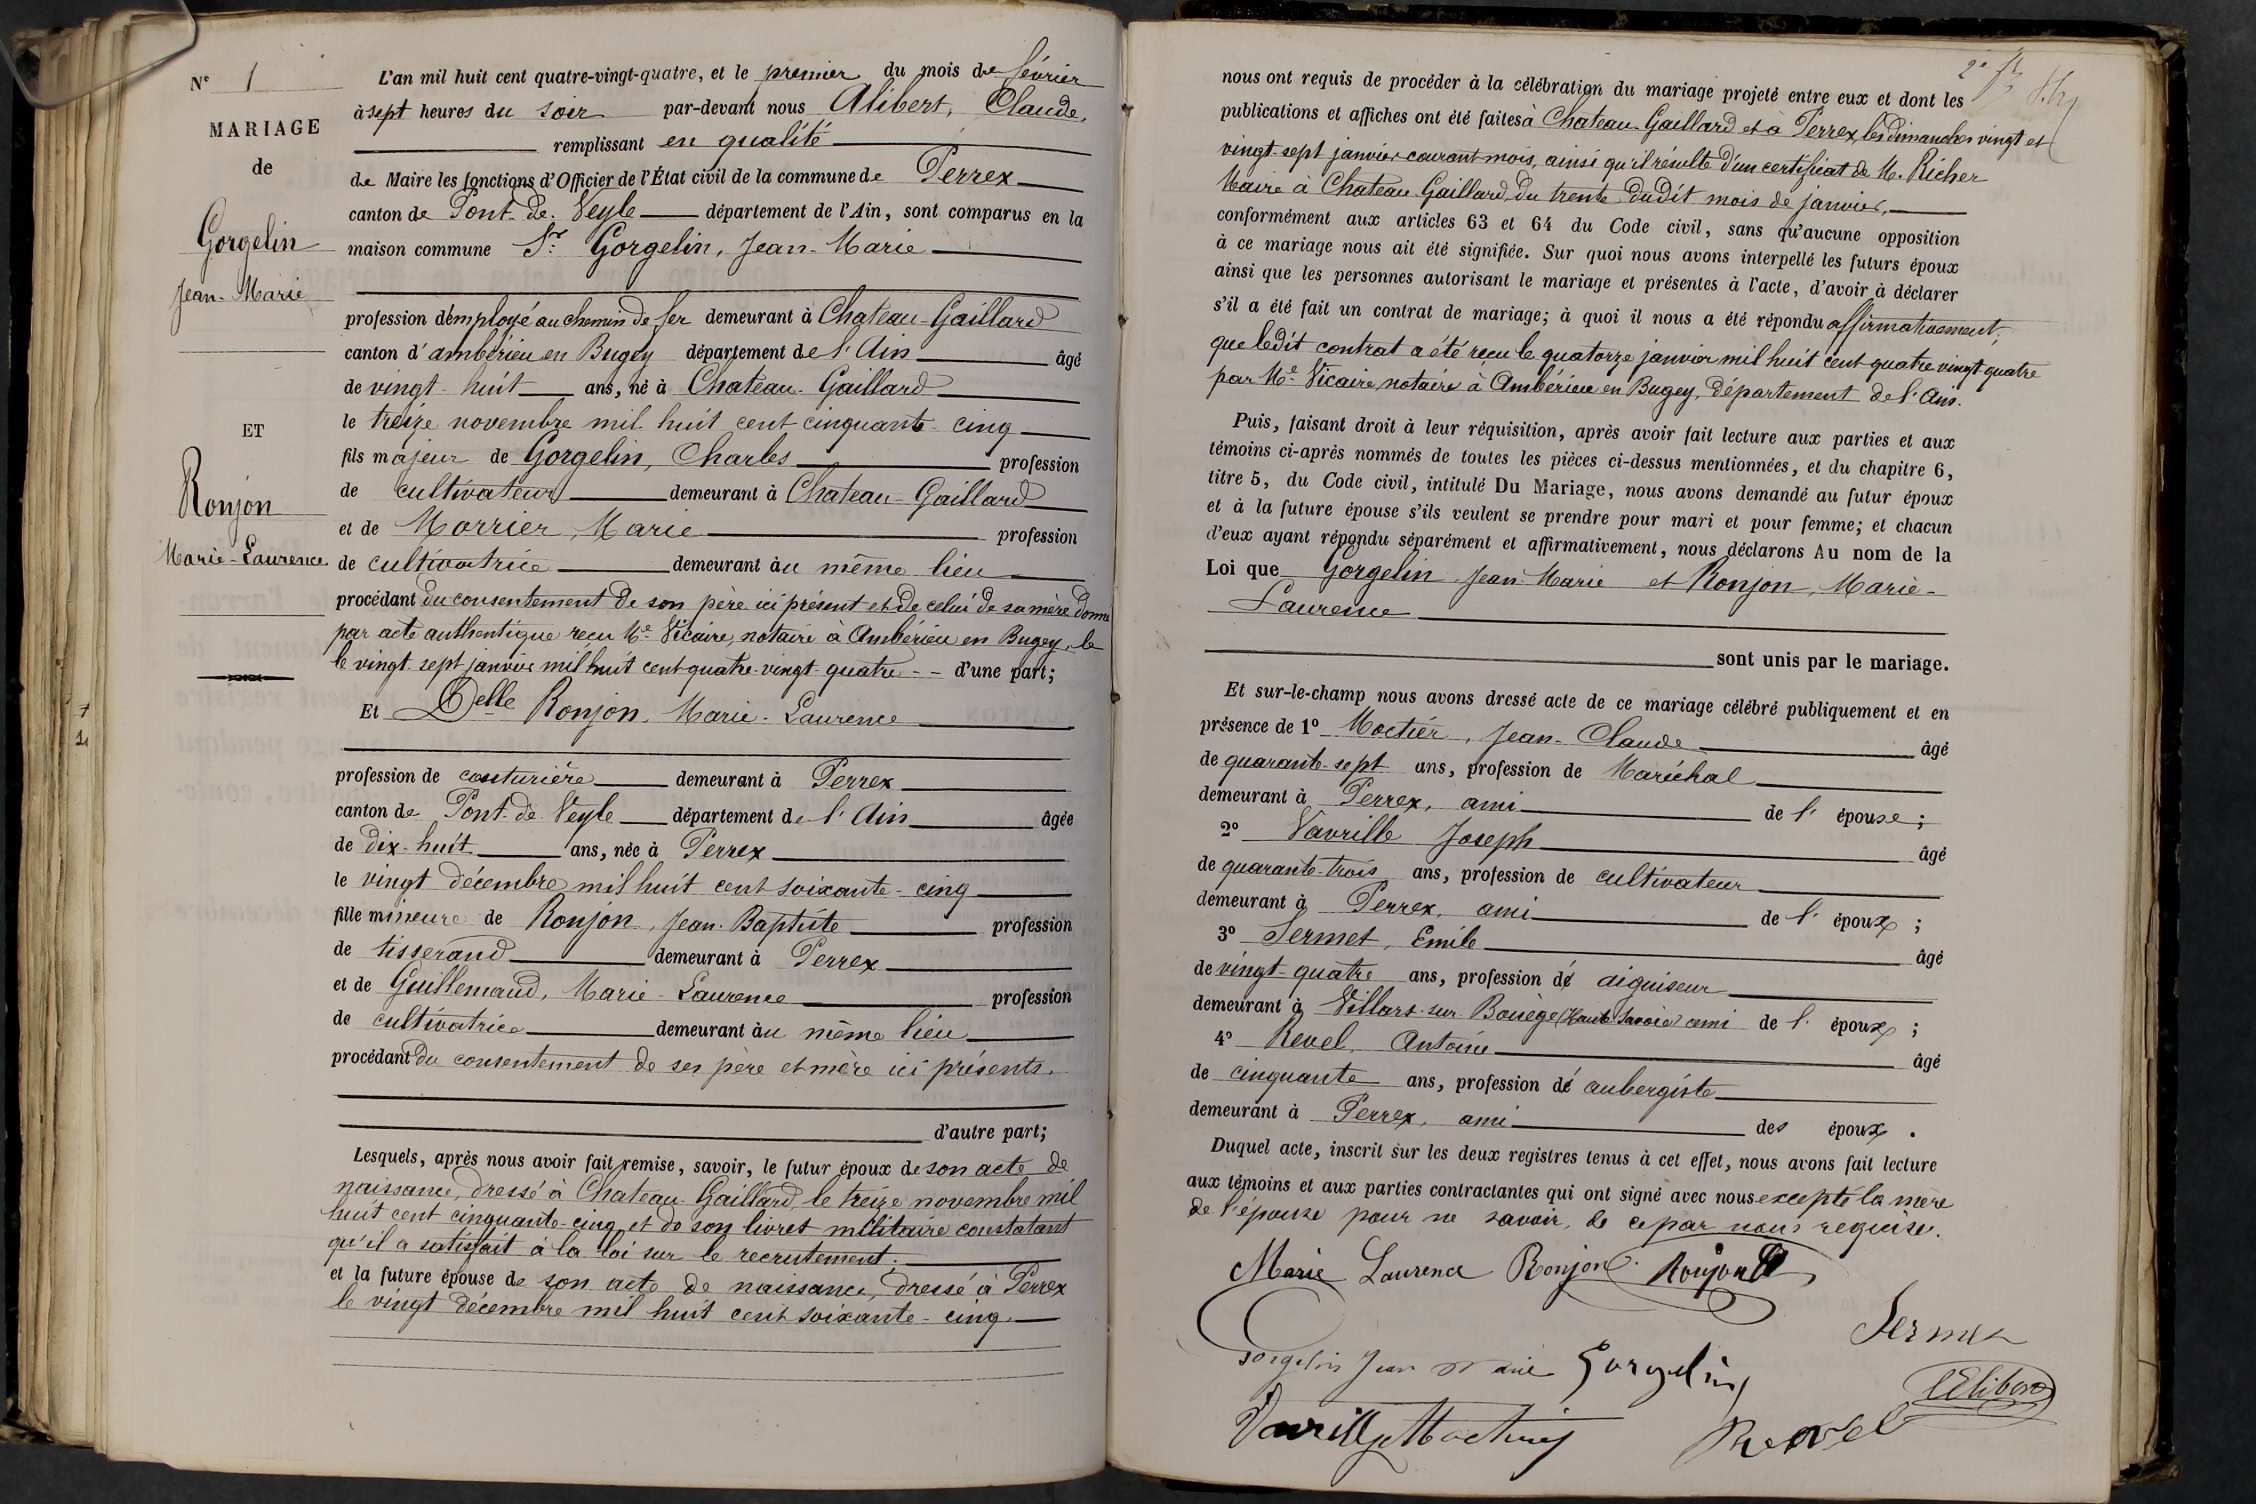 N° 1
MARIAGE
de
Gorgelin
Jean-Marie
ET
Ronjon
Marie-Laurence
L'an mil huit cent quatre-vingt-quatre, et le premier du mois de février
à sept heures du soir par-devant nous Alibert, Claude,
remplissant en qualité
de Maire les fonctions d'Officier de l'État civil de la commune de Perrex
canton de Pont-de-Veyle département de l'Ain, sont comparus en la
maison commune Sr. Gorgelin, Jean-Marie
profession d'employé au chemin de fer demeurant à Chateau-Gaillard
canton d'ambérieu en Bugey département de l'Ain âgé
de vingt-huit ans, né à Chateau-Gaillard
le treize novembre mil huit cent cinquante-cinq
fils majeur de Gorgelin, Charles profession
de cultivateur demeurant à Chateau-Gaillard
et de Morrier, Marie profession
de cultivatrice demeurant au même lieu
procédant du consentement de son père ici présent et de celui de sa mère donné
par acte authentique reçu Me. Vicaire, notaire à Ambérieu en Bugey, le
le vingt-sept janvier mil huit cent quatre-vingt-quatre -- d'une part;
Et Delle Ronjon, Marie-Laurence
profession de couturière demeurant à Perrex
canton de Pont-de-Veyle département de l'Ain âgée
de dix-huit ans, née à Perrex
le vingt décembre mil huit cent soixante-cinq
fille mineure de Ronjon, Jean-Baptiste profession
de tisserand demeurant à Perrex
et de Guillemaud, Marie-Laurence profession
de cultivatrice demeurant au même lieu
procédant du consentement de ses père et mère ici présents.
d'autre part;
Lesquels, après nous avoir fait remise, savoir, le futur époux de son acte de
naissance, dressé à Chateau-Gaillard, le treize novembre mil
huit cent cinquante-cinq et de son livret militaire constatant
qu'il a satisfait à la loi sur le recrutement.
et la future épouse de son acte de naissance, dressé à Perrex
le vingt décembre mil huit cent soixante-cinq.
nous ont requis de procéder à la célébration du mariage projeté entre eux et dont les
publications et affiches ont été faites à Chateau-Gaillard et à Perrex, les dimanches vingt et
vingt-sept janvier courant mois, ainsi qu'il résulte d'un certificat de M. Richer
Maire à Chateau-Gaillard, du trente dudit mois de janvier,
conformément aux articles 63 et 64 du Code civil, sans qu'aucune opposition
à ce mariage nous ait été signifiée. Sur quoi nous avons interpellé les futurs époux
ainsi que les personnes autorisant le mariage et présentes à l'acte, d'avoir à déclarer
s'il a été fait un contrat de mariage; à quoi il nous a été répondu affirmativement,
que ledit contrat a été reçu le quatorze janvier mil huit cent quatre vingt quatre
par Me. Vicaire notaire à Ambérieu en Bugey, département de l'Ain.
Puis, faisant droit à leur réquisition, après avoir fait lecture aux parties et aux
témoins ci-après nommés de toutes les pièces ci-dessus mentionnées, et du chapitre 6,
titre 5, du Code civil, intitulé Du Mariage, nous avons demandé au futur époux
et à la future épouse s'ils veulent se prendre pour mari et pour femme; et chacun
d'eux ayant répondu séparément et affirmativement, nous déclarons Au nom de la
Loi que Gorgelin Jean-Marie et Ronjon, Marie-
Laurence
sont unis par le mariage.
Et sur-le-champ nous avons dressé acte de ce mariage célébré publiquement et en
présence de 1° Moctier, Jean-Claude âgé
de quarante-sept ans, profession de Maréchal
demeurant à Perrex, ami de l'épouse;
2° Vavrille Joseph âgé
de quarante-trois ans, profession de cultivateur
demeurant à Perrex, ami de l'époux;
3° Sermet, Emile âgé
de vingt-quatre ans, profession d' aiguiseur
demeurant à Villars-sur-Boëge (Haute Savoie) ami de l'époux;
4° Revel Antoine âgé
de cinquante ans, profession d' aubergiste
demeurant à Perrex, ami des époux.
Duquel acte, inscrit sur les deux registres tenus à cet effet, nous avons fait lecture
aux témoins et aux parties contractantes qui ont signé avec nous excepté la mère
de l'épouse pour ne savoir, de ce par nous requise.
Marie Laurence Ronjon Ronjon
Sermet
Gorgelin Jean Marie Gorgelin
Alibert
Vavrille Moctier Revel